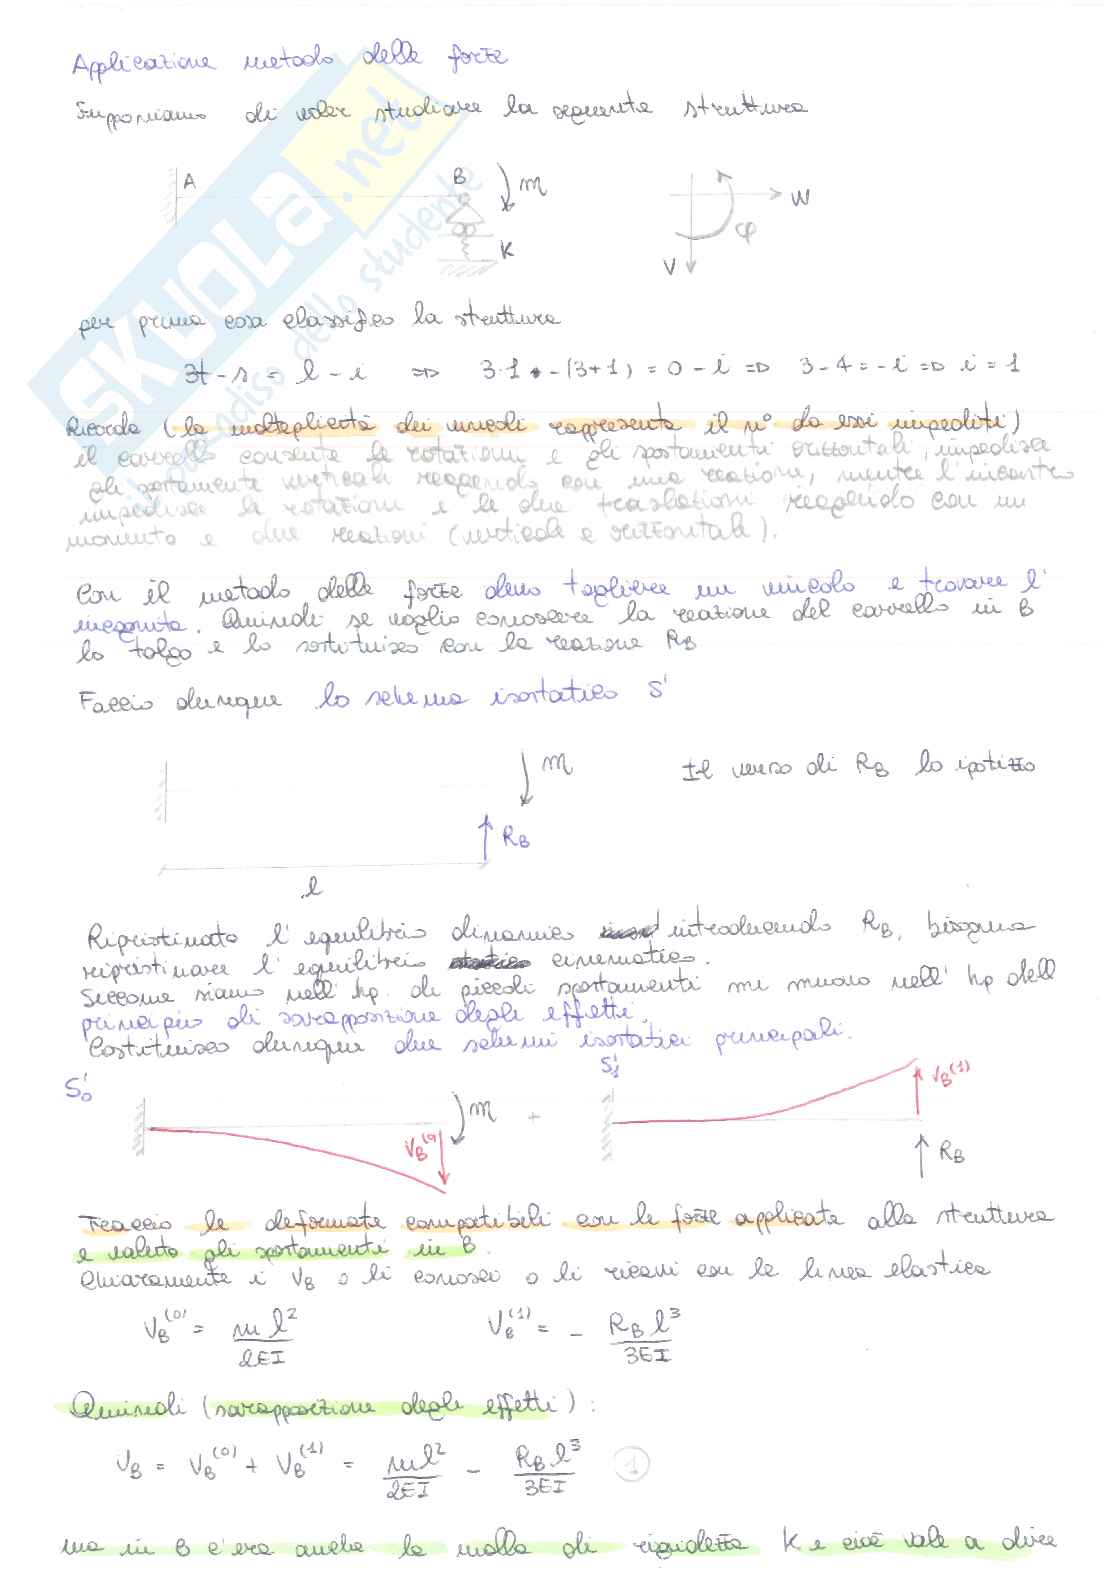 Applicazione metodo delle forze
Supponiamo di voler studiare la seguente struttura
A B m
W
φ
K
V
per prima cosa classifico la struttura
3t - s = l - i ⇒ 3·1 - (3+1) = 0 - i ⇒ 3 - 4 = - i ⇒ i = 1
Ricorda (la molteplicità dei vincoli rappresenta il n° da essi impediti)
il carrello consente le rotazioni e gli spostamenti orizzontali, impedisce
gli spostamenti verticali reagendo con una reazione, mentre l'incastro
impedisce le rotazioni e le due traslazioni reagendo con un
momento e due reazioni (verticale e orizzontale).
Con il metodo delle forze devo togliere un vincolo e trovare l'
incognita. Quindi se voglio conoscere la reazione del carrello in B
lo tolgo e lo sostituisco con la reazione RB
Faccio dunque lo schema isostatico S'
m
Il verso di RB lo ipotizzo
RB
l
Ripristinato l'equilibrio dinamico introducendo RB, bisogna
ripristinare l'equilibrio cinematico.
Siccome siamo nell'hp. di piccoli spostamenti mi muovo nell'hp dell
principio di sovrapposizione degli effetti.
Costituisco dunque due schemi isostatici principali.
S'0 m + S'1 VB(1)
VB(0)
RB
Traccio le deformate compatibili con le forze applicate alla struttura
e valuto gli spostamenti in B.
Chiaramente i VB o li conosci o li ricavi con la linea elastica
VB(0) = ml²/2EI VB(1) = - RB l³/3EI
Quindi (sovrapposizione degli effetti):
VB = VB(0) + VB(1) = ml²/2EI - RB l³/3EI 1
ma in B c'era anche la molla di rigidezza K e cioè vale a dire
SKUOLA.net
il paradiso dello studente